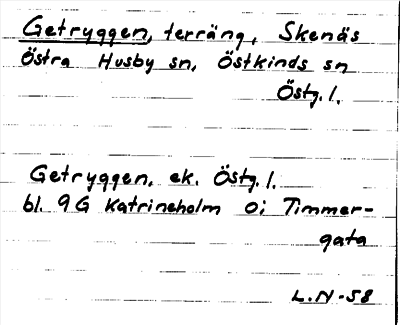 Getryggen, terräng, Skenäs
Östra Husby sn, Östkinds sn
Östg. l.
Getryggen, ek. Östg. l.
bl. 9G Katrineholm o; Timmer-
gata
L.N-58